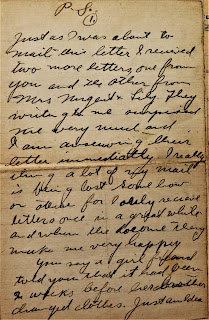 P.S.
(1)
Just as I was about to
mail this letter I received
two more letters, one from
you and the other from
Mrs Nugent & Lily. They
writing to me surprised
me very much and
I am answering their
letter immediately. I really
think a lot of my mail
is being lost some how
or other for I only receive
letters once in a great while
and when the do come they
make me very happy
you say a girl friend
told you that it had been
2 weeks before her brother
changed clothes. Just an Idea